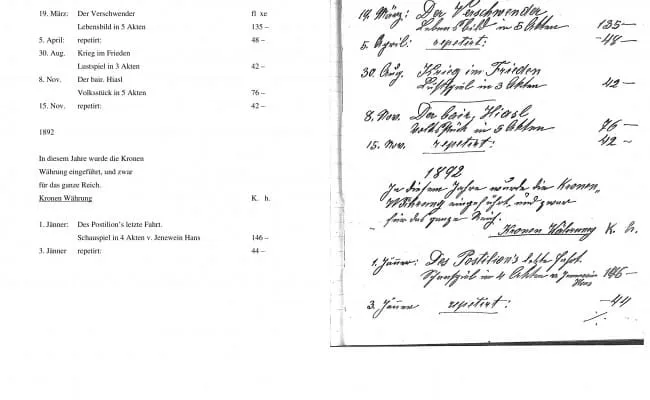 19. März: Der Verschwender fl xe
Lebensbild in 5 Akten 135 –
5. April: repetirt: 48 –
30. Aug. Krieg im Frieden
Lustspiel in 3 Akten 42 –
8. Nov. Der bair. Hiasl
Volksstück in 5 Akten 76 –
15. Nov. repetirt: 42 –
1892
In diesem Jahre wurde die Kronen
Währung eingeführt, und zwar
für das ganze Reich.
Kronen Währung K. h.
1. Jänner: Des Postilion's letzte Fahrt.
Schauspiel in 4 Akten v. Jenewein Hans 146 –
3. Jänner repetirt: 44 –
19. März: Der Verschwender
Lebensbild in 5 Akten 135 —
5. April: repetirt: -48 —
30. Aug. Krieg im Frieden
Lustspiel in 3 Akten 42 —
8. Nov. Der bair. Hiasl
Volksstück in 5 Akten 76 —
15. Nov. repetirt: 42 —
1892
In diesem Jahre wurde die Kronen„
Währung eingeführt, und zwar
für das ganze Reich.
Kronen Währung K. h.
1. Jänner: Des Postilion's letzte Fahrt.
Schauspiel in 4 Akten v. Jenewein Hans 146 —
3. Jänner repetirt: -44